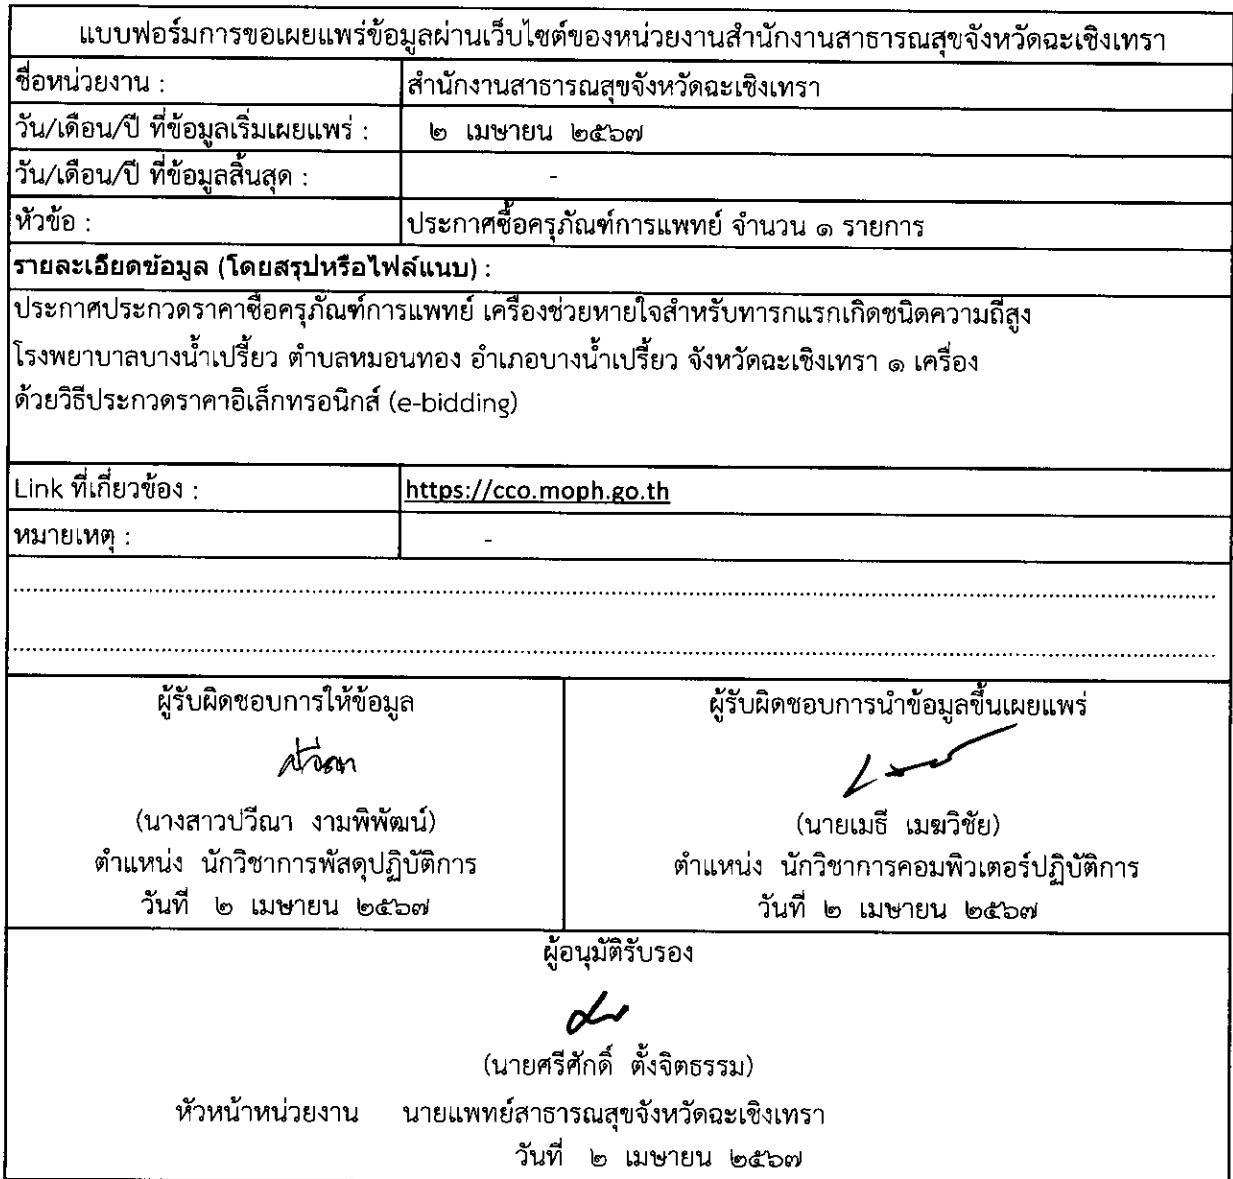 แบบฟอร์มการขอเผยแพร่ข้อมูลผ่านเว็บไซต์ของหน่วยงานสำนักงานสาธารณสุขจังหวัดฉะเชิงเทรา
ชื่อหน่วยงาน : สำนักงานสาธารณสุขจังหวัดฉะเชิงเทรา
วัน/เดือน/ปี ที่ข้อมูลเริ่มเผยแพร่ : ๒ เมษายน ๒๕๖๗
วัน/เดือน/ปี ที่ข้อมูลสิ้นสุด : -
หัวข้อ : ประกาศซื้อครุภัณฑ์การแพทย์ จำนวน ๑ รายการ
รายละเอียดข้อมูล (โดยสรุปหรือไฟล์แนบ) :
ประกาศประกวดราคาซื้อครุภัณฑ์การแพทย์ เครื่องช่วยหายใจสำหรับทารกแรกเกิดชนิดความถี่สูง
โรงพยาบาลบางน้ำเปรี้ยว ตำบลหมอนทอง อำเภอบางน้ำเปรี้ยว จังหวัดฉะเชิงเทรา ๑ เครื่อง
ด้วยวิธีประกวดราคาอิเล็กทรอนิกส์ (e-bidding)
Link ที่เกี่ยวข้อง : https://cco.moph.go.th
หมายเหตุ : -
ผู้รับผิดชอบการให้ข้อมูล
ปวีณา
(นางสาวปวีณา งามพิพัฒน์)
ตำแหน่ง นักวิชาการพัสดุปฏิบัติการ
วันที่ ๒ เมษายน ๒๕๖๗
ผู้รับผิดชอบการนำข้อมูลขึ้นเผยแพร่
(นายเมธี เมฆวิชัย)
ตำแหน่ง นักวิชาการคอมพิวเตอร์ปฏิบัติการ
วันที่ ๒ เมษายน ๒๕๖๗
ผู้อนุมัติรับรอง
(นายศรีศักดิ์ ตั้งจิตธรรม)
หัวหน้าหน่วยงาน นายแพทย์สาธารณสุขจังหวัดฉะเชิงเทรา
วันที่ ๒ เมษายน ๒๕๖๗